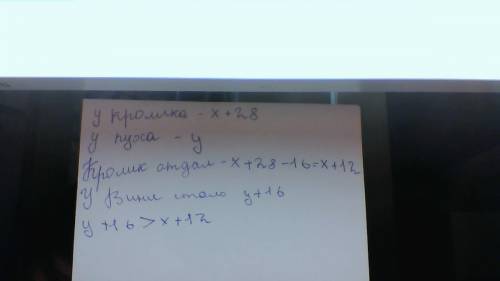 у кролика - x+28
у пуха - y
Кролик отдал - x+28-16=x+12
У Вини стало y+16
y+16>x+12